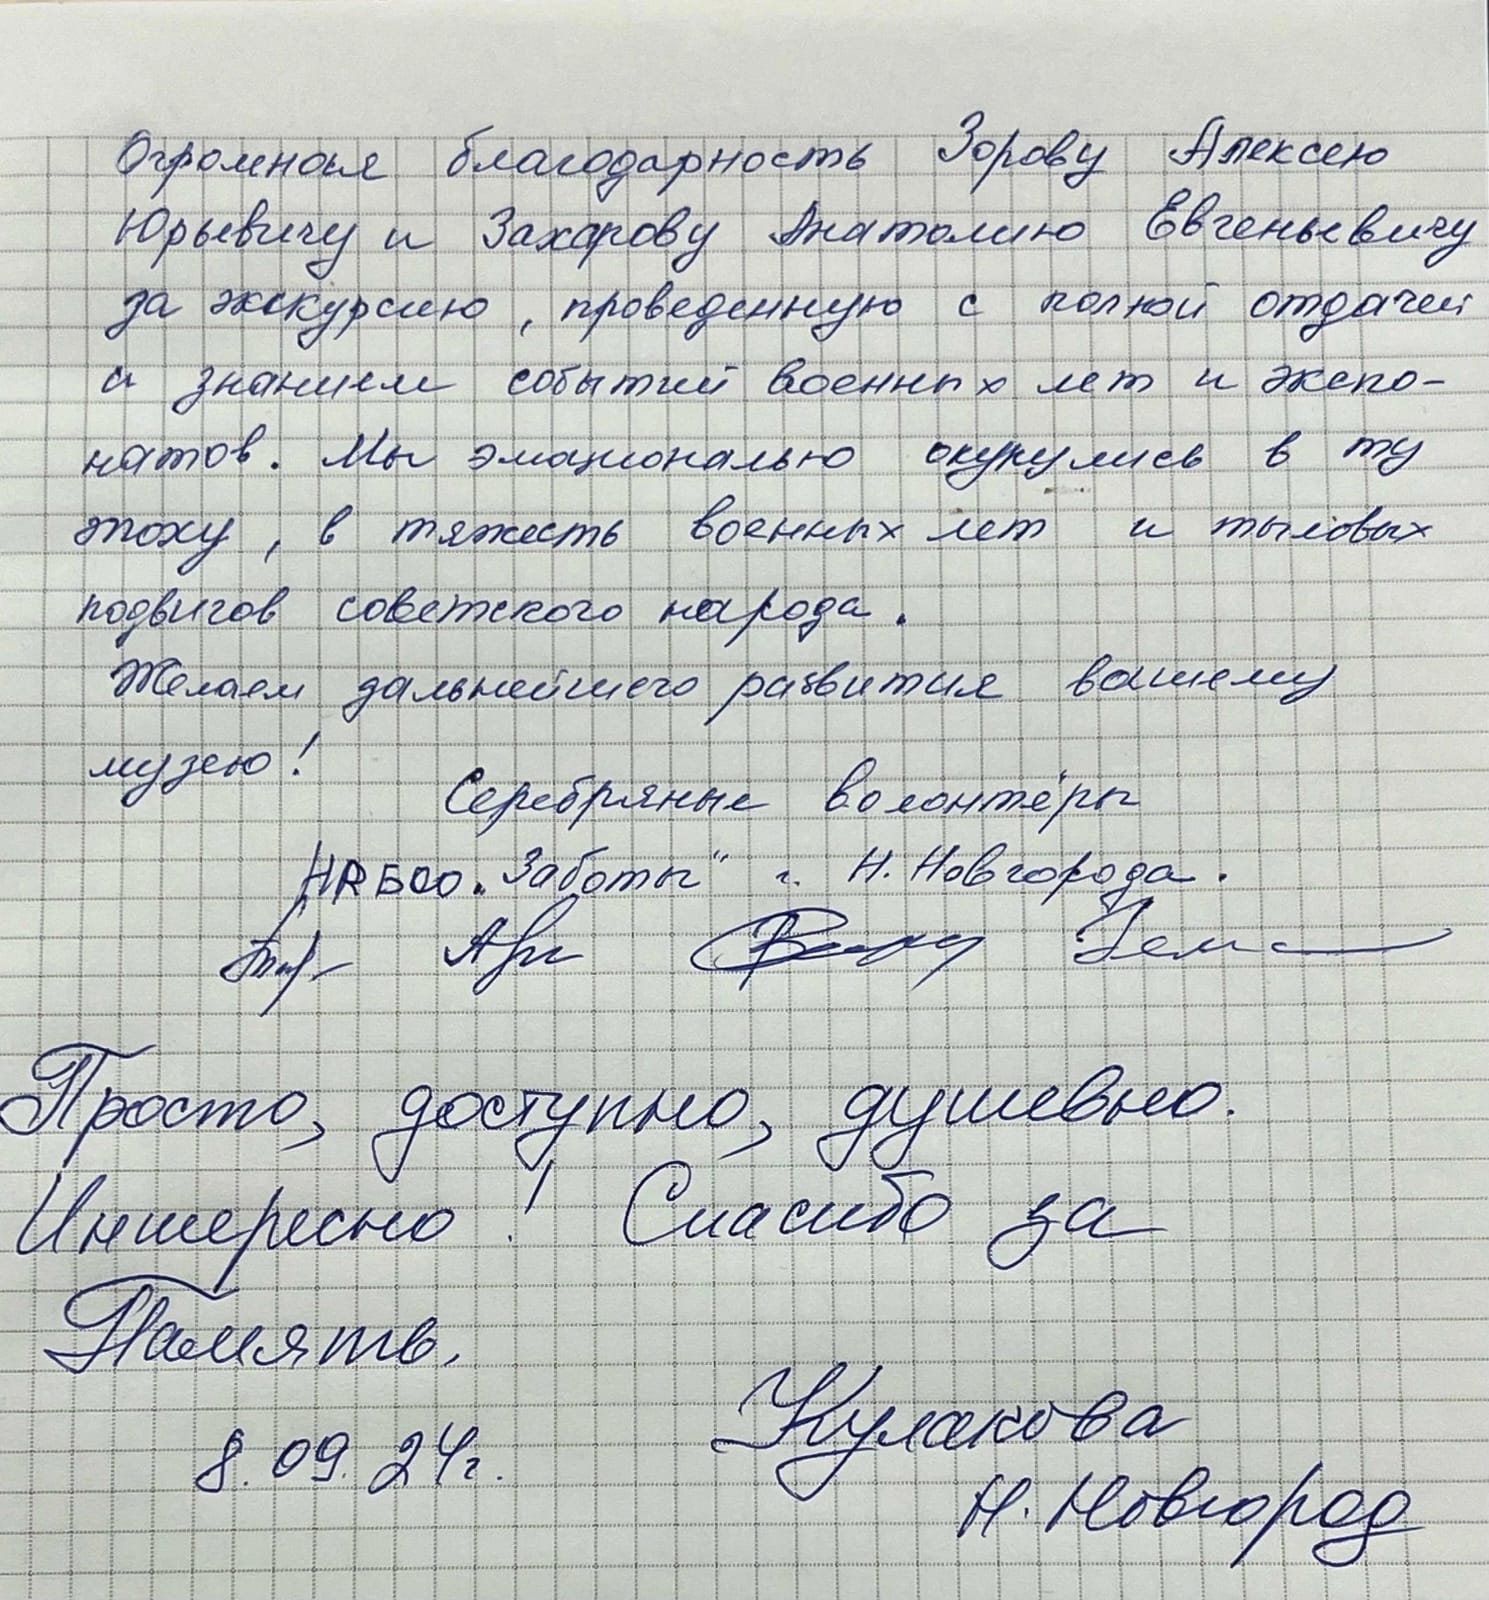 Огромная благодарность Зорову Алексею
Юрьевичу и Захарову Анатолию Евгеньевичу
за экскурсию, проведенную с полной отдачей
и знанием событий военных лет и экспо-
натов. Мы эмоционально окунулись в ту
эпоху, в тяжесть военных лет и тыловых
подвигов советского народа.
Желаем дальнейшего развития вашему
музею!
Серебряные волонтёры
"Заботы" г. Н. Новгорода.
Просто, доступно, душевно.
Интересно! Спасибо за
Память.
8.09.24г.
Кулакова
Н. Новгород